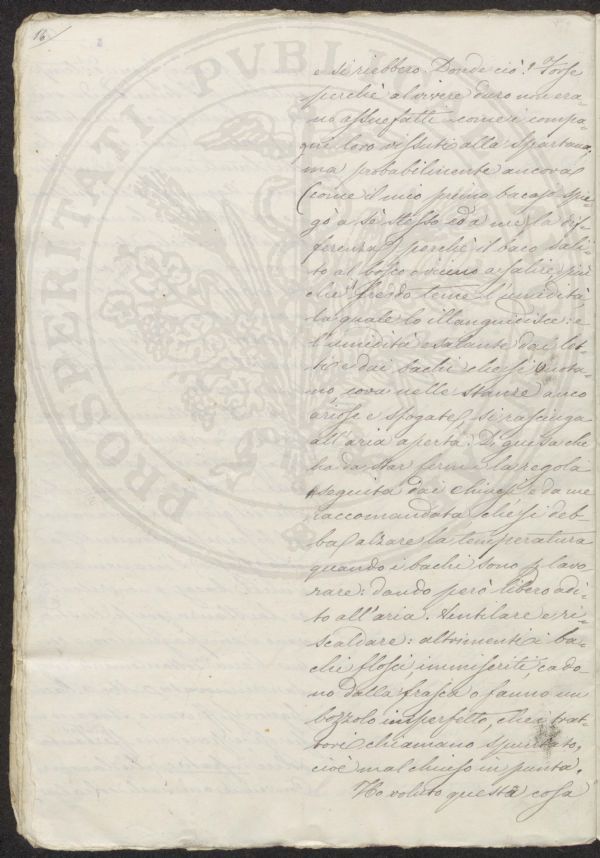 16/
e si riebbero. Donde ciò? Forse
perchè al vivere duro non era-
no assuefatti come i compa-
gni loro vissuti alla spartana;
ma probabilmente ancora
(come il mio primo bacajo spie-
gò a sè stesso ed a me la dif-
ferenza) perchè il baco sali-
to al bosco o vicino a salire più
che il freddo teme l'umidità
la quale lo illanguidisce: e
l'umidità esalante dai let-
ti e dai bachi che si vuota-
no, cova nelle stanze anco
ariose e sfogate, si rasciuga
all'aria aperta. Di qui sa che
ha da star ferma la regola
seguita dai Chinesi e da me
raccomandata che si deb-
ba alzare la temperatura
quando i bachi sono p. lavo-
rare: dando però libero adi-
to all'aria. Ventilare e ri-
scaldare: altrimenti i ba-
chi flosci, immiseriti, cado-
no dalla frasca o fanno un
bozzolo imperfetto, che i trat-
tori chiamano spuntato,
cioè mal chiuso in punta.
Ho voluto questa cosa
PROSPERITATI PVBLICAE